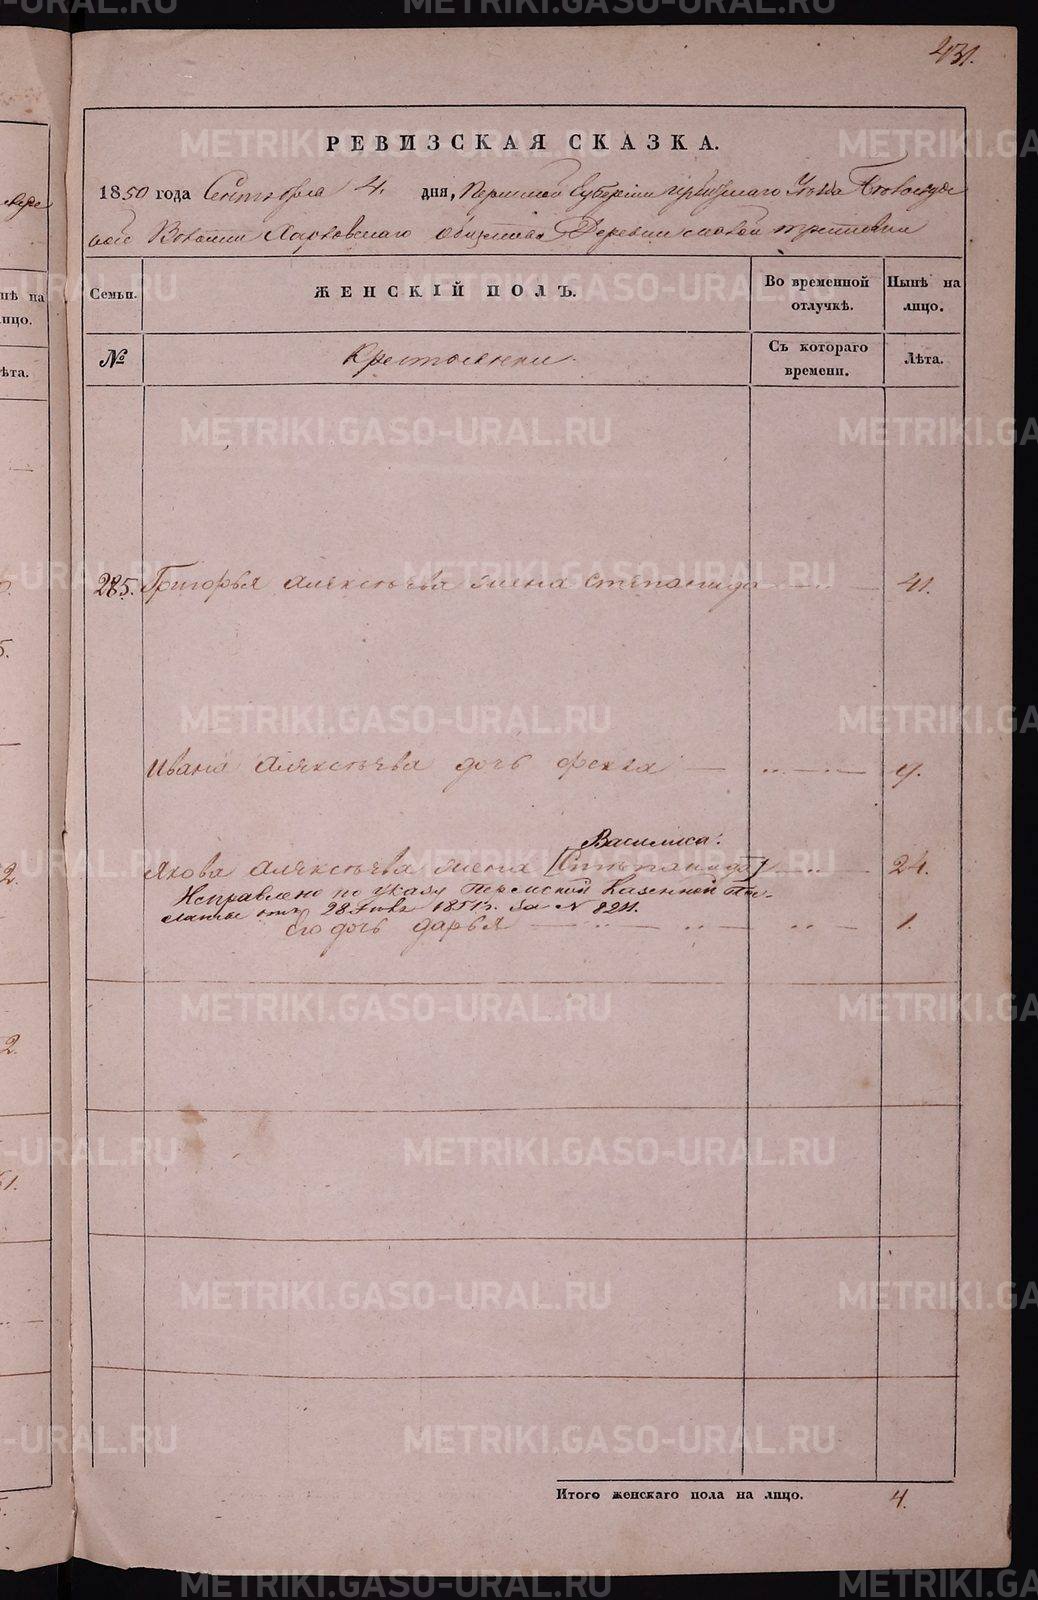 431.
РЕВИЗСКАЯ СКАЗКА.
1850 года Сентября 4 дня, Пермской Губернии Ирбитскаго Уезда
Волости Харловскаго общества Деревни
Семьи. ЖЕНСКІЙ ПОЛЪ. Во временной отлучкѣ. Нынѣ на лицо.
№ Крестьянки. Съ котораго времени. Лѣта.
285. Григорья Алексѣева жена Степанида 41.
Ивана Алексѣева дочь Фекла 9.
Василиса.
Якова Алексѣева жена [Степанида] 24.
Исправлено по указу Пермской Казенной Па-
латы отъ 28 1851 г. За № 8211.
его дочь Дарья 1.
Итого женскаго пола на лицо. 4.
METRIKI.GASO-URAL.RU